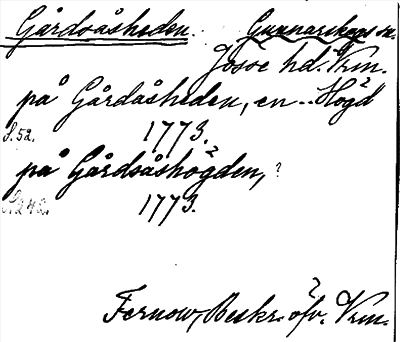 Gårdsåsheden. Gunnarskogs sn.
Jösse hd. Vrm.
på Gårdsåsheden, en .. Högd
S. 52. 1773.
på Gårdsåshögden, ?
S. 242. 1773.
Fernow, Beskr. öfv. Vrm.